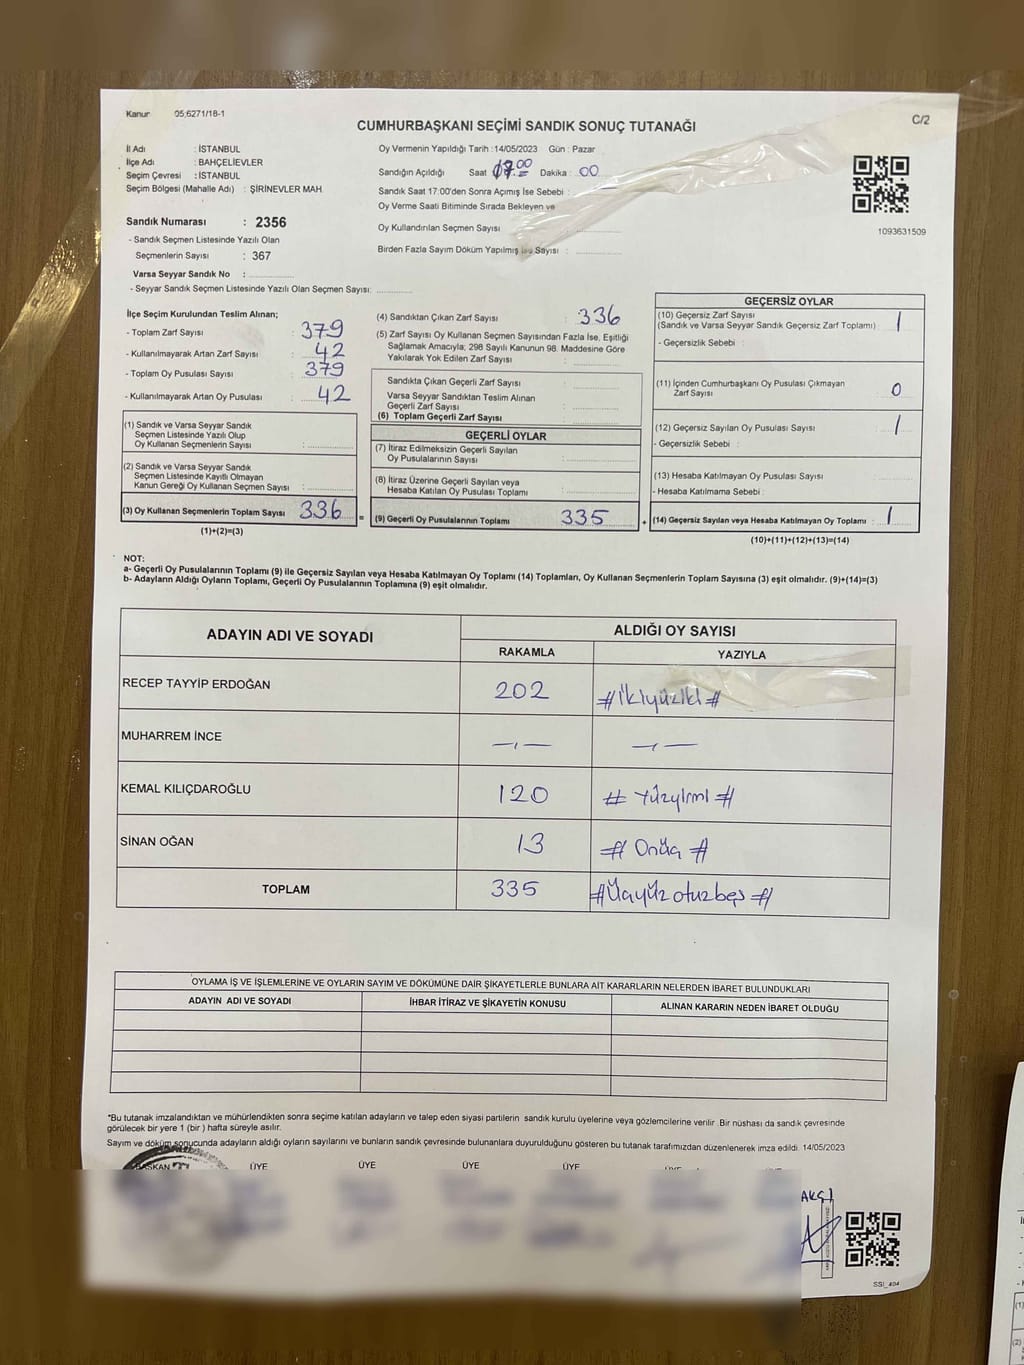 Kanun 05.6271/18-1
C/2
CUMHURBAŞKANI SEÇİMİ SANDIK SONUÇ TUTANAĞI
İl Adı : İSTANBUL
İlçe Adı : BAHÇELİEVLER
Seçim Çevresi : İSTANBUL
Seçim Bölgesi (Mahalle Adı) : ŞİRİNEVLER MAH.
Oy Vermenin Yapıldığı Tarih :14/05/2023 Gün : Pazar
Sandığın Açıldığı Saat Dakika : 00
Sandık Saat 17:00'den Sonra Açımış İse Sebebi :
Oy Verme Saati Bitiminde Sırada Bekleyen ve
Oy Kullandırılan Seçmen Sayısı
Birden Fazla Sayım Döküm Yapılmış ise Sayısı :
1093631509
Sandık Numarası : 2356
- Sandık Seçmen Listesinde Yazılı Olan
Seçmenlerin Sayısı : 367
Varsa Seyyar Sandık No :
- Seyyar Sandık Seçmen Listesinde Yazılı Olan Seçmen Sayısı:
İlçe Seçim Kurulundan Teslim Alınan;
- Toplam Zarf Sayısı : 379
- Kullanılmayarak Artan Zarf Sayısı : 42
- Toplam Oy Pusulası Sayısı : 379
- Kullanılmayarak Artan Oy Pusulası : 42
(1) Sandık ve Varsa Seyyar Sandık
Seçmen Listesinde Yazılı Olup
Oy Kullanan Seçmenlerin Sayısı :
(2) Sandık ve Varsa Seyyar Sandık
Seçmen Listesinde Kayıtlı Olmayan
Kanun Gereği Oy Kullanan Seçmen Sayısı :
(3) Oy Kullanan Seçmenlerin Toplam Sayısı 336
(1)+(2)=(3)
(4) Sandıktan Çıkan Zarf Sayısı : 336
(5) Zarf Sayısı Oy Kullanan Seçmen Sayısından Fazla İse, Eşitliği
Sağlamak Amacıyla; 298 Sayılı Kanunun 98. Maddesine Göre
Yakılarak Yok Edilen Zarf Sayısı :
Sandıkta Çıkan Geçerli Zarf Sayısı :
Varsa Seyyar Sandıktan Teslim Alınan
Geçerli Zarf Sayısı :
(6) Toplam Geçerli Zarf Sayısı :
GEÇERLİ OYLAR
(7) İtiraz Edilmeksizin Geçerli Sayılan
Oy Pusulalarının Sayısı :
(8) İtiraz Üzerine Geçerli Sayılan veya
Hesaba Katılan Oy Pusulası Toplamı :
= (9) Geçerli Oy Pusulalarının Toplamı 335
GEÇERSİZ OYLAR
(10) Geçersiz Zarf Sayısı
(Sandık ve Varsa Seyyar Sandık Geçersiz Zarf Toplamı) : 1
- Geçersizlik Sebebi :
(11) İçinden Cumhurbaşkanı Oy Pusulası Çıkmayan
Zarf Sayısı : 0
(12) Geçersiz Sayılan Oy Pusulası Sayısı : 1
- Geçersizlik Sebebi :
(13) Hesaba Katılmayan Oy Pusulası Sayısı :
- Hesaba Katılmama Sebebi :
+ (14) Geçersiz Sayılan veya Hesaba Katılmayan Oy Toplamı : 1
(10)+(11)+(12)+(13)=(14)
NOT:
a- Geçerli Oy Pusulalarının Toplamı (9) ile Geçersiz Sayılan veya Hesaba Katılmayan Oy Toplamı (14) Toplamları, Oy Kullanan Seçmenlerin Toplam Sayısına (3) eşit olmalıdır. (9)+(14)=(3)
b- Adayların Aldığı Oyların Toplamı, Geçerli Oy Pusulalarının Toplamına (9) eşit olmalıdır.
ADAYIN ADI VE SOYADI ALDIĞI OY SAYISI
RAKAMLA YAZIYLA
RECEP TAYYİP ERDOĞAN 202 #İkiyüziki#
MUHARREM İNCE —ı— —ı—
KEMAL KILIÇDAROĞLU 120 # Yüzyirmi #
SİNAN OĞAN 13 # Onüç #
TOPLAM 335 #Üçyüz otuzbeş #
OYLAMA İŞ VE İŞLEMLERİNE VE OYLARIN SAYIM VE DÖKÜMÜNE DAİR ŞİKAYETLERLE BUNLARA AİT KARARLARIN NELERDEN İBARET BULUNDUKLARI
ADAYIN ADI VE SOYADI İHBAR İTİRAZ VE ŞİKAYETİN KONUSU ALINAN KARARIN NEDEN İBARET OLDUĞU
*Bu tutanak imzalandıktan ve mühürlendikten sonra seçime katılan adayların ve talep eden siyasi partilerin sandık kurulu üyelerine veya gözlemcilerine verilir .Bir nüshası da sandık çevresinde
görülecek bir yere 1 (bir ) hafta süreyle asılır.
Sayım ve döküm sonucunda adayların aldığı oyların sayılarını ve bunların sandık çevresinde bulunanlara duyurulduğunu gösteren bu tutanak tarafımızdan düzenlenerek imza edildi. 14/05/2023
BAŞKAN ÜYE ÜYE ÜYE ÜYE ÜYE
SSI_404